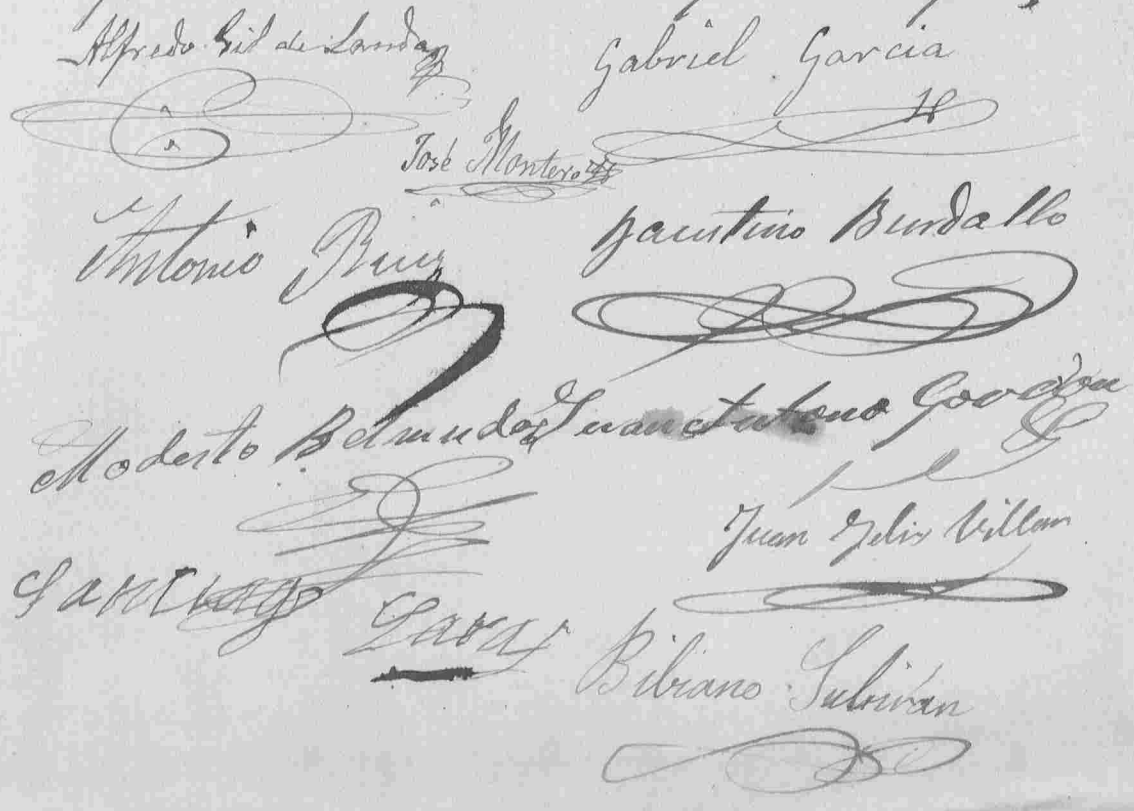 Alfredo Gil de Landa
Gabriel Garcia
José Montero
Antonio Ruiz
Faustino Burdallo
Modesto Bermudez
Juan Antonio
Juan Felix Villan
Santiago
Bibiano